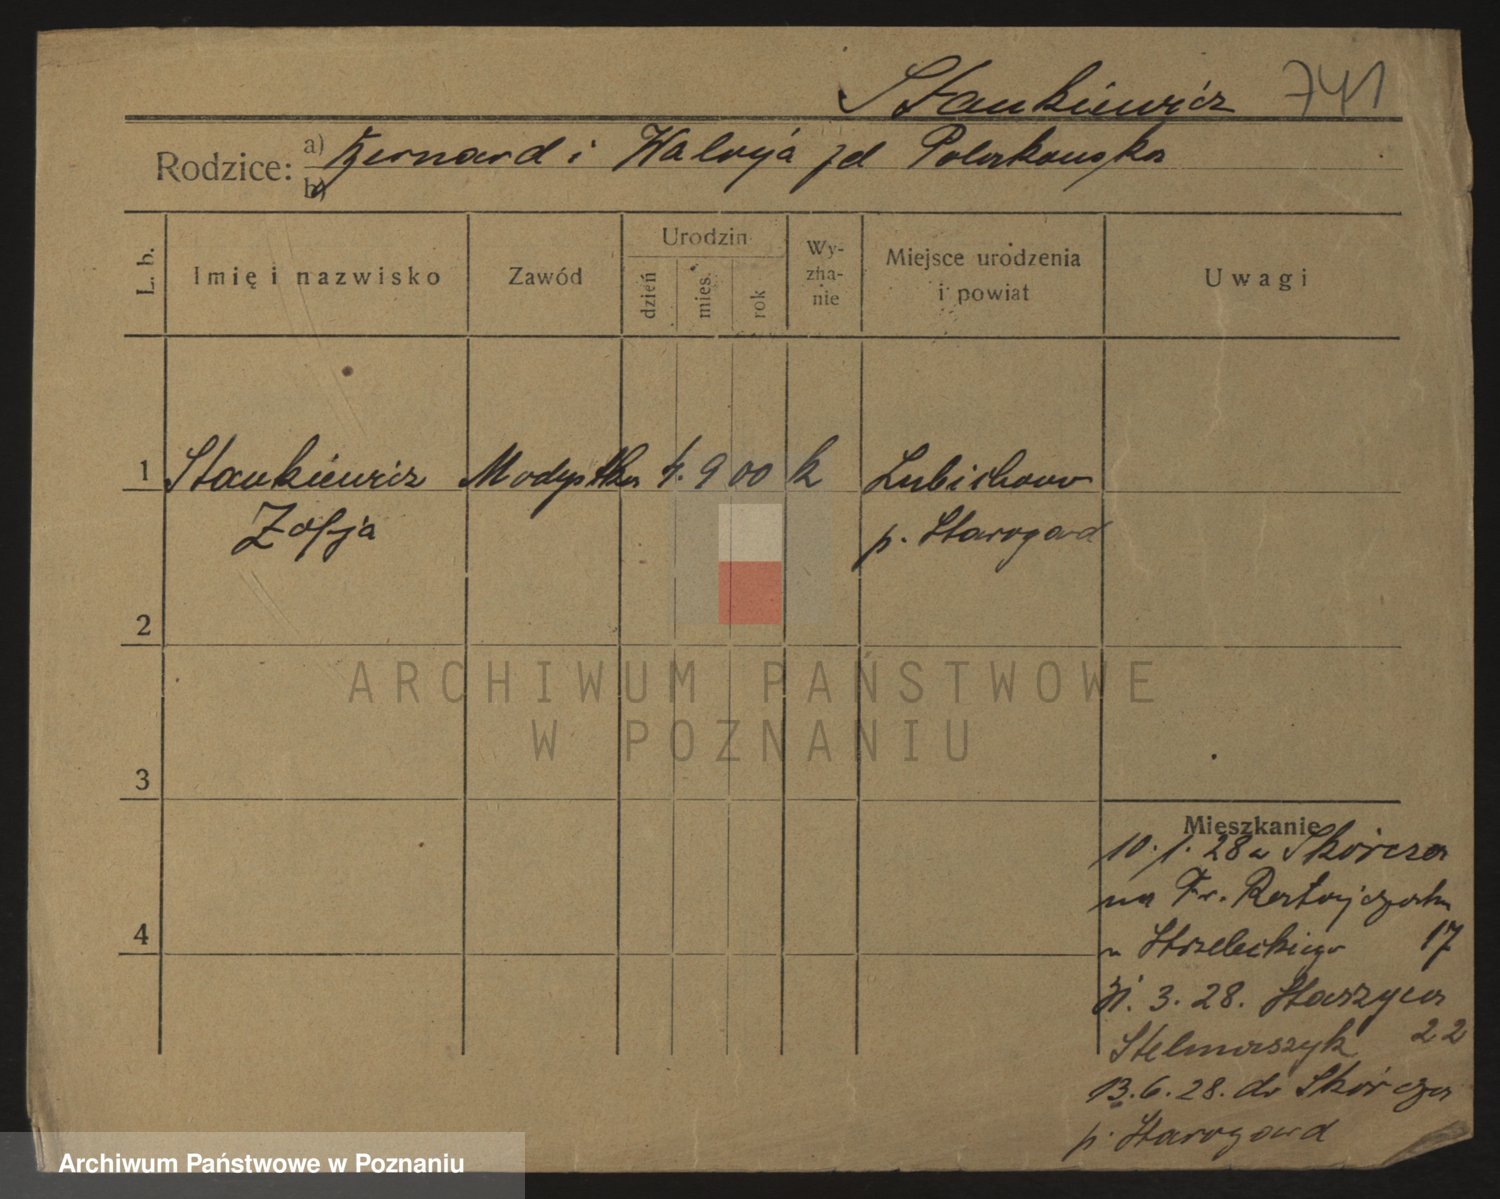 Stankiewicz 741
Rodzice: a) Bernard i Waleryja zd
b)
L. b. Imię i nazwisko Zawód Urodzin dzień mies. rok Wy-zna-nie Miejsce urodzenia i powiat Uwagi
1 Stankiewicz Modystka 4. 9 00 k Lubichowo
Zofja p. Starogard
2
ARCHIWUM PAŃSTWOWE
W POZNANIU
3
Mieszkanie
10. 1. 28 z Skórcza
na Fr. Ratajczaka
u Strzeleckiego 17
3. 28. Staszyca
Stelmaszyk 22
13. 6. 28. do Skórcza
p. Starogard
4
Archiwum Państwowe w Poznaniu